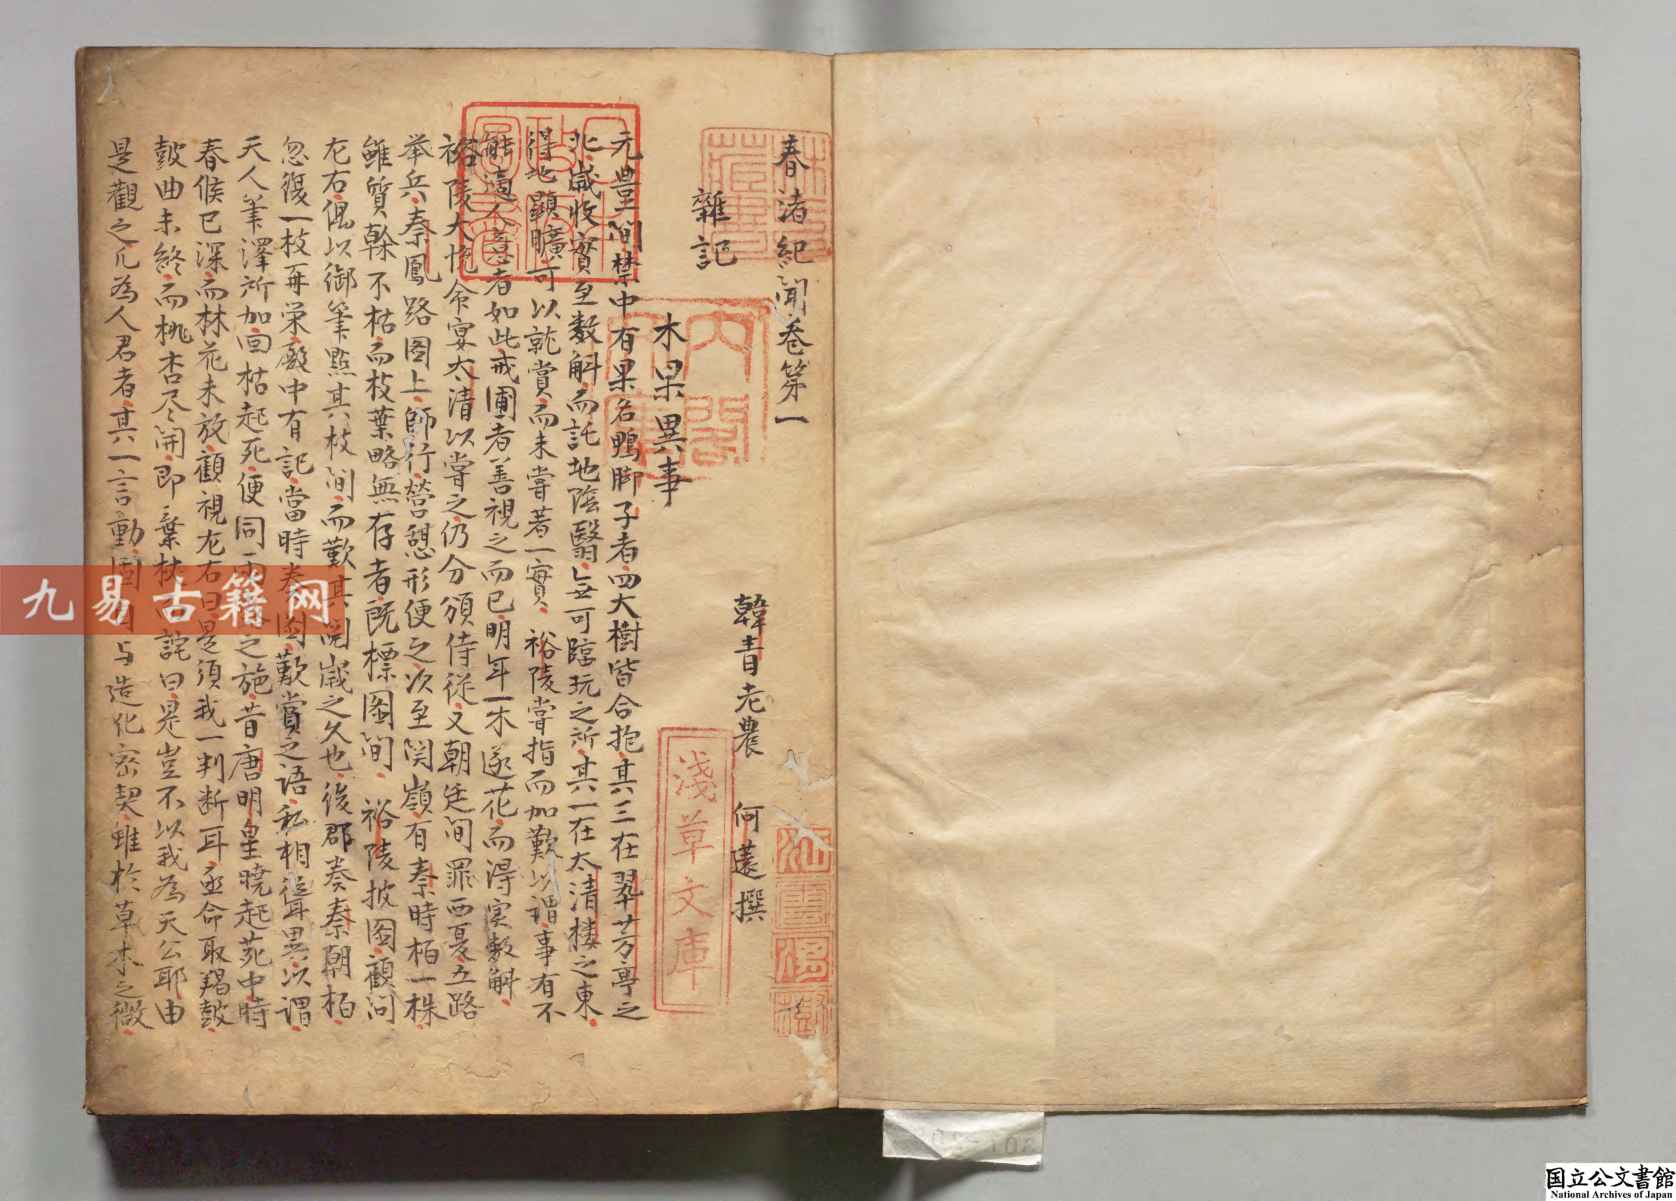 春渚紀聞卷第一
韓青老農　何薳撰
雜記
木果異事
元豐間禁中有果名鴨脚子者四大樹皆合抱其三在翠芳亭之
北歲收實至數斛而託地陰翳無可臨玩之所其一在太清樓之東
得地顯曠可以就賞而未嘗著一實裕陵嘗指而加歎以謂事有不
能適人意者如此戒圃者善視之而已明年一木遂花而得実數斛
裕陵大悅命宴太清以賞之仍分頒侍従又朝廷间罪西夏五路
举兵秦鳳路图上師行營憩形便之次至関嶺有秦時栢一株
雖質榦不枯而枝葉略無存者既標図间裕陵披図顧问
左右偶以御筆點其枝间而歎其閱歲之久也後郡奏秦朝柏
忽復一枝再栄殿中有記當時奏図歎賞之语私相聳異以謂
天人筆澤所加回枯起死便同雨露之施昔唐明皇曉起苑中時
春候已深而林花未放顧視左右曰是須我一判断耳亟命取羯皷
皷曲未終而桃杏尽開即棄杖而詫曰是豈不以我為天公耶由
是觀之凡為人君者其一言動固自与造化密契雖於草木之微
淺草文庫
九易古籍网
国立公文書館
National Archives of Japan